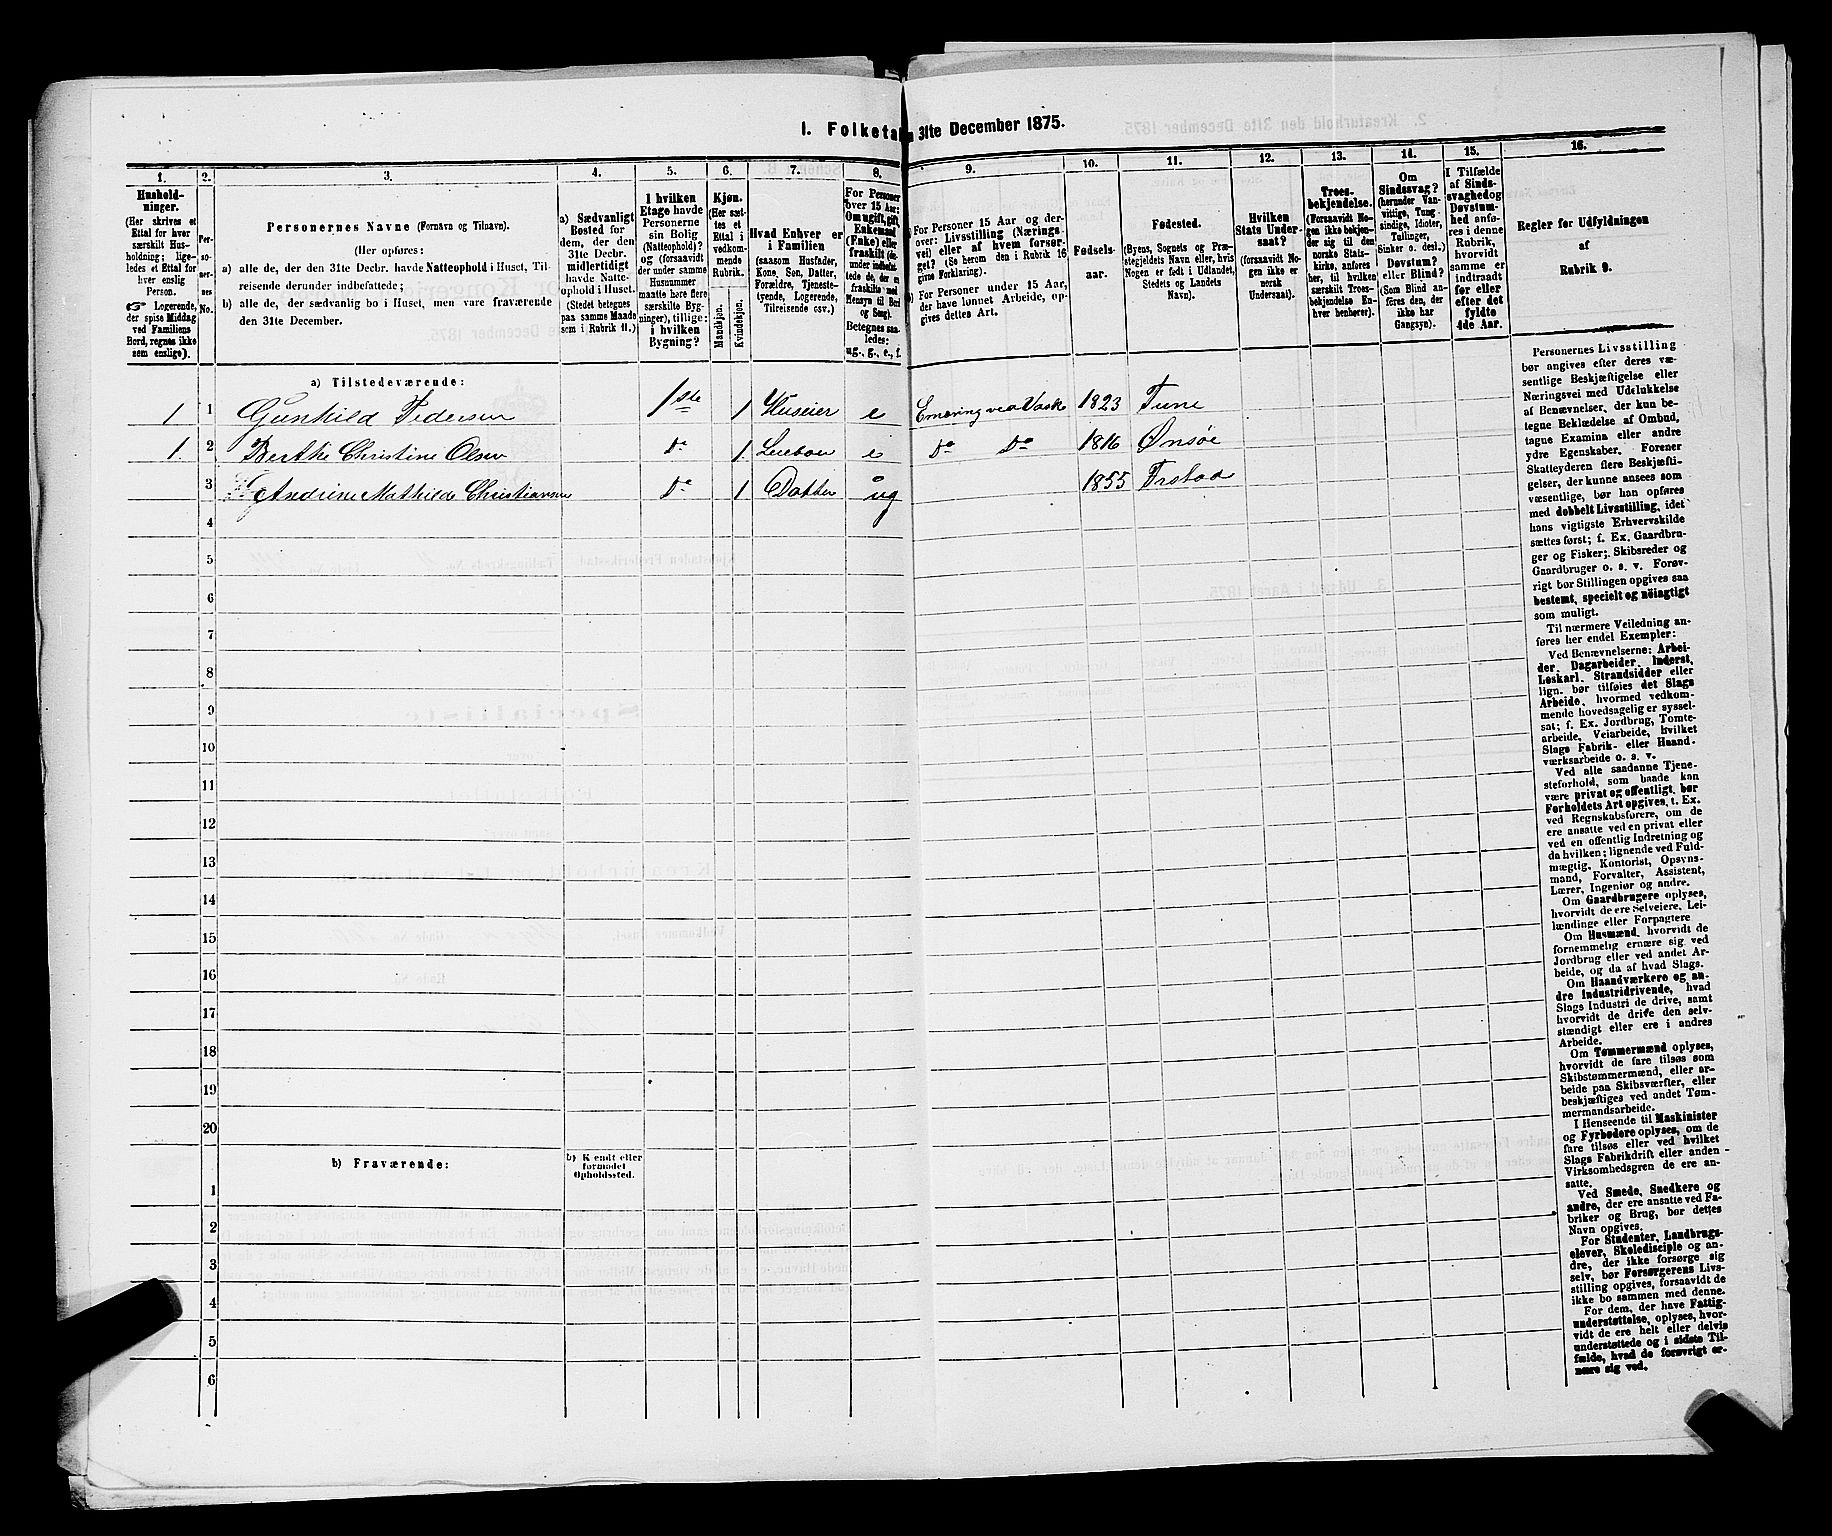 I. Folketal 31te December 1875.
1. 2. 3. 4. 5. 6. 7. 8. 9. 10. 11. 12. 13. 14. 15. 16.
Hushold-
ninger.
(Her skrives et
Ettal for hver
særskilt Hus-
holdning; lige-
ledes et Ettal for
hver enslig
Person.
Logerende,
der spise Middag
ved Familiens
Bord, regnes ikke
som enslige).
Per-
so-
ner-
nes
No.
Personernes Navne (Fornavn og Tilnavn).
(Her opføres:
a) alle de, der den 31te Decbr. havde Natteophold i Huset, Til-
reisende derunder indbefattede;
b) alle de, der sædvanlig bo i Huset, men vare fraværende
den 31te December.
a) Sædvanligt
Bosted for
dem, der den
31te Decbr.
midlertidigt
havde Natte-
ophold i Huset.
(Stedet betegnes
paa samme Maade
som i Rubrik 11.)
I hvilken
Etage havde
Personerne
sin Bolig
(Natteophold)?
og (forsaavidt
der under samme
Husnummer
maatte høre flere
særskilte Byg-
ninger), tillige:
i hvilken
Bygning?
Kjøn.
(Her sæt-
tes et
Ettal i
vedkom-
mende
Rubrik.
Mandkjøn.
Kvindekjøn.
Hvad Enhver er
i Familien
(saasom Husfader,
Kone, Søn, Datter,
Forældre, Tjeneste-
tyende, Logerende,
Tilreisende osv.).
For Personer
over 15 Aar:
Om ugift, gift,
Enkemand
(Enke) eller
fraskilt
Betegnes saa-
ledes:
ug., g., e., f.
For Personer 15 Aar og der-
over: Livsstilling (Nærings-
vei) eller af hvem forsør-
get? (Se herom den i Rubrik 16
givne Forklaring).
For Personer under 15 Aar,
der have lønnet Arbeide, op-
gives dettes Art.
Fødsels-
aar.
Fødested.
(Byens, Sognets og Præ-
stegjeldets Navn eller, hvis
Nogen er født i Udlandet,
Stedets og Landets
Navn).
Hvilken
Stats Under-
saat?
(forsaavidt No-
gen ikke er
norsk
Undersaat).
Troes-
bekjendelse.
(Forsaavidt No-
gen ikke bekjen-
der sig til den
norske Stats-
kirke, anføres
her, til hvilken
særskilt Troes-
bekjendelse En-
hver henhører).
Om
Sindssvag?
(herunder Van-
vittige, Tung-
sindige, Idioter,
Tullinger,
Sinker o. desl.)
Døvstum?
eller Blind?
(Som Blind an-
føres den, der
ikke har
Gangsyn).
I Tilfælde
af Sinds-
svaghed og
Døvstum-
hed anfø-
res i denne
Rubrik,
hvorvidt
samme er
indtraadt
før eller
efter det
fyldte
4de Aar.
Regler for Udfyldningen
af
Rubrik 9.
a) Tilstedeværende:
1 1 Gunhild Pedersen 1ste 1 Huseier e Ernæring ved Vask 1823 Tune
1. 2 Berthe Christine Olsen Do 1. Leieboer e Do Do 1816 Onsøe
3 Andrine Mathilde Christiansen Do 1 Datter ug 1855 Frstad
4
5
6
7
8
9
10
11
12
13
14
15
16
17
18
19
20
b) Fraværende:
b) Kjendt eller
formodet
Opholdssted.
1
2
3
4
5
6
Personernes Livsstilling
bør angives efter deres væ-
sentlige Beskjæftigelse eller
Næringsvei med Udelukkelse
af Benævnelser, der kun be-
tegne Beklædelse af Ombud,
tagne Examina eller andre
ydre Egenskaber. Forener
Skatteyderen flere Beskjæfti-
gelser, der kunne ansees som
væsentlige, bør han opføres
med dobbelt Livsstilling, idet
hans vigtigste Erhvervskilde
sættes først; f. Ex. Gaardbru-
ger og Fisker; Skibsreder og
Gaardbruger o. s. v. Forøv-
rigt bør Stillingen opgives saa
bestemt, specielt og nöiagtigt
som muligt.
Til nærmere Veiledning an-
føres her endel Exempler:
Ved Benævnelserne: Arbei-
der, Dagarbeider, Inderst,
Løskarl, Strandsidder eller
lign. bør tilføies det Slags
Arbeide, hvormed vedkom-
mende hovedsagelig er syssel-
sat; f. Ex. Jordbrug, Tomte-
arbeide, Veiarbeide, hvilket
Slags Fabrik- eller Haand-
værksarbeide o. s. v.
Ved alle saadanne Tjene-
steforhold, som baade kan
være privat og offentligt, bør
Forholdets Art opgives, t. Ex.
ved Regnskabsførere, om de
ere ansatte ved en privat eller
ved en offentlig Indretning og
da hvilken; lignende ved Fuld-
mægtig, Kontorist, Opsyns-
mand, Forvalter, Assistent,
Lærer, Ingeniør og andre.
Om Gaardbrugere oplyses,
hvorvidt de ere Selveiere, Lei-
lændinge eller Forpagtere
Om Husmænd, hvorvidt de
fornemmelig ernære sig ved
Jordbrug eller ved andet Ar-
beide, og da af hvad Slags.
Om Haandværkere og an-
dre Industridrivende, hvad
Slags Industri de drive, samt
hvorvidt de drive den selv-
stændigt eller ere i andres
Arbeide.
Om Tømmermænd oplyses,
hvorvidt de fare tilsøs som
Skibstømmermænd, eller ar-
beide paa Skibsværfter, eller
beskjæftiges ved andet Tøm-
mermandsarbeide.
I Henseende til Maskinister
og Fyrbødere oplyses, om de
fare tilsøs eller ved hvilket
Slags Fabrikdrift eller anden
Virksomhedsgren de ere an-
satte.
Ved Smede, Snedkere og
andre, der ere ansatte ved Fa-
briker og Brug, bør dettes
Navn opgives.
For Studenter, Landbrugs-
elever, Skoledisciple og an-
dre, der ikke forsørge sig
selv, bør Forsørgerens Livs-
stilling opgives, forsaavidt de
ikke bo sammen med denne.
For dem, der have Fattig-
understøttelse, oplyses, hvor-
vidt de ere helt eller delvis
understøttede og i sidste Til-
fælde, hvad de forøvrigt er-
nære sig ved.